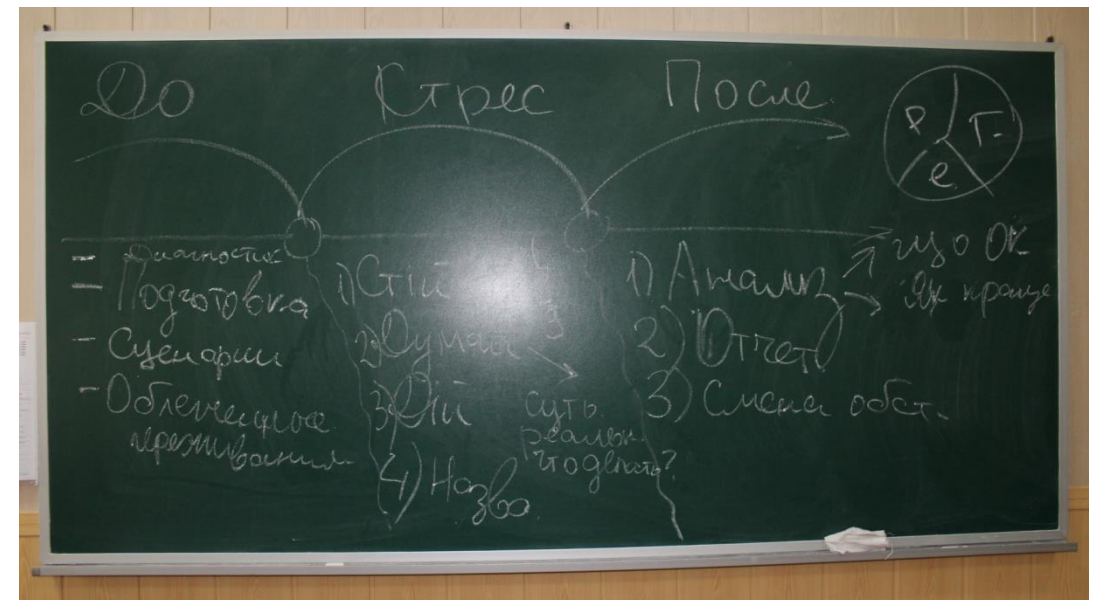 До Стрес После
Р Т
е
- Диагностик
- Подготовка
- Сценарии
- Облегченное
переживания
1) Стій
2) Думай
3) Дій
4) Назва
суть
реальн.
что делать?
1) Анализ
2) Отчет
3) Смена обст.
що ОК
Як краще